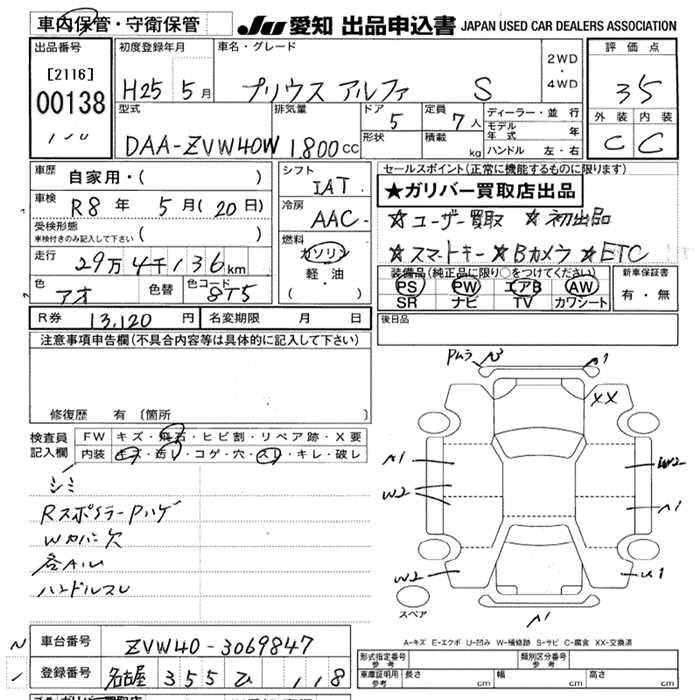 車内保管・守衛保管
JU 愛知 出品申込書 JAPAN USED CAR DEALERS ASSOCIATION
出品番号
[2116]
00138
初度登録年月
H25 5月
車名・グレード
プリウス アルファ S
2WD
・
4WD
評価点
3.5
外装 内装
C C
型式
DAA-ZVW40W
排気量
1,800cc
ドア
5
形状
定員
7人
積載
kg
ディーラー・並行
モデル年式 年
ハンドル 左・右
車歴
自家用・( )
車検
R8年 5月(20日)
受検形態
車検付きのみ記入して下さい ( )
走行
29万4千136km
色
アオ
色替
色コード
8T5
シフト
IAT
冷房
AAC
燃料
ガソリン
軽・油
( )
セールスポイント(正常に機能するものに限ります)
★ガリバー買取店出品
☆ユーザー買取 ☆初出品
☆スマートキー ☆Bカメラ ☆ETC
装備品(純正品に限り○をつけてください)
PS PW エアB AW
SR ナビ TV カワシート
新車保証書
有・無
R券 13,120円
名変期限 月 日
後日品
注意事項申告欄(不具合内容等は具体的に記入して下さい)
修復歴 有 〔箇所
検査員
記入欄
FW キズ・飛石・ヒビ割・リペア跡・X要
内装 キズ・汚レ・コゲ・穴・スレ・キレ・破レ
シミ
RスポイラーPハゲ
Wカバー欠
各AU
ハンドルスレ
Pムラ A3 A1
XX
A1
W2
W2
A1
W2
U1
A1
スペア
A-キズ E-エクボ U-凹み W-補修跡 S-サビ C-腐食 XX-交換済
車台番号
ZVW40-3069847
登録番号
名古屋 355 ひ 118
型式指定番号
参考
類別区分番号
参考
車庫証明用
参考
長さ cm
幅 cm
高さ cm